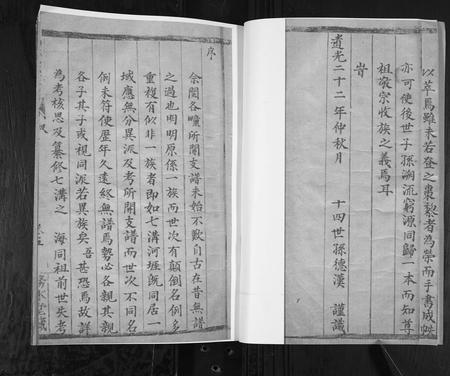 以萃焉雖未若登之棗梨者為崇而手書成帙
亦可使後世子孫溯流窮源同歸一本而知尊
祖敬宗收族之義焉耳
旹
道光二十二年仲秋月　十四世孫德漢　謹識
序
余閱各疃所開支譜未始不歎自古在昔無譜
之過也明明原係一族而世次有顛倒名例多
重複有似非一族者即如七溝河堐既同居一
域應無分異派及考所開支譜而世次不同名
例未符使歷年久遠終無譜焉勢必各親其親
各子其子或視同派若異族矣吾甚恐焉故詳
為考核思及纂修七溝之　海同祖前世失考